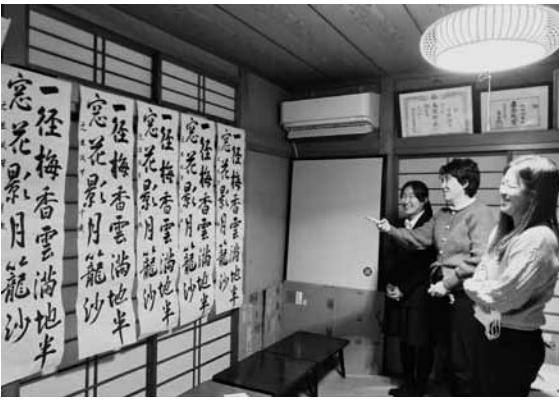 一径梅香雲満地半
窓花影月籠沙
一径梅香雲満地半
窓花影月籠沙
一径梅香雲満地半
窓花影月籠沙
一径梅香雲満地半
窓花影月籠沙
一径梅香雲満地半
窓花影月籠沙